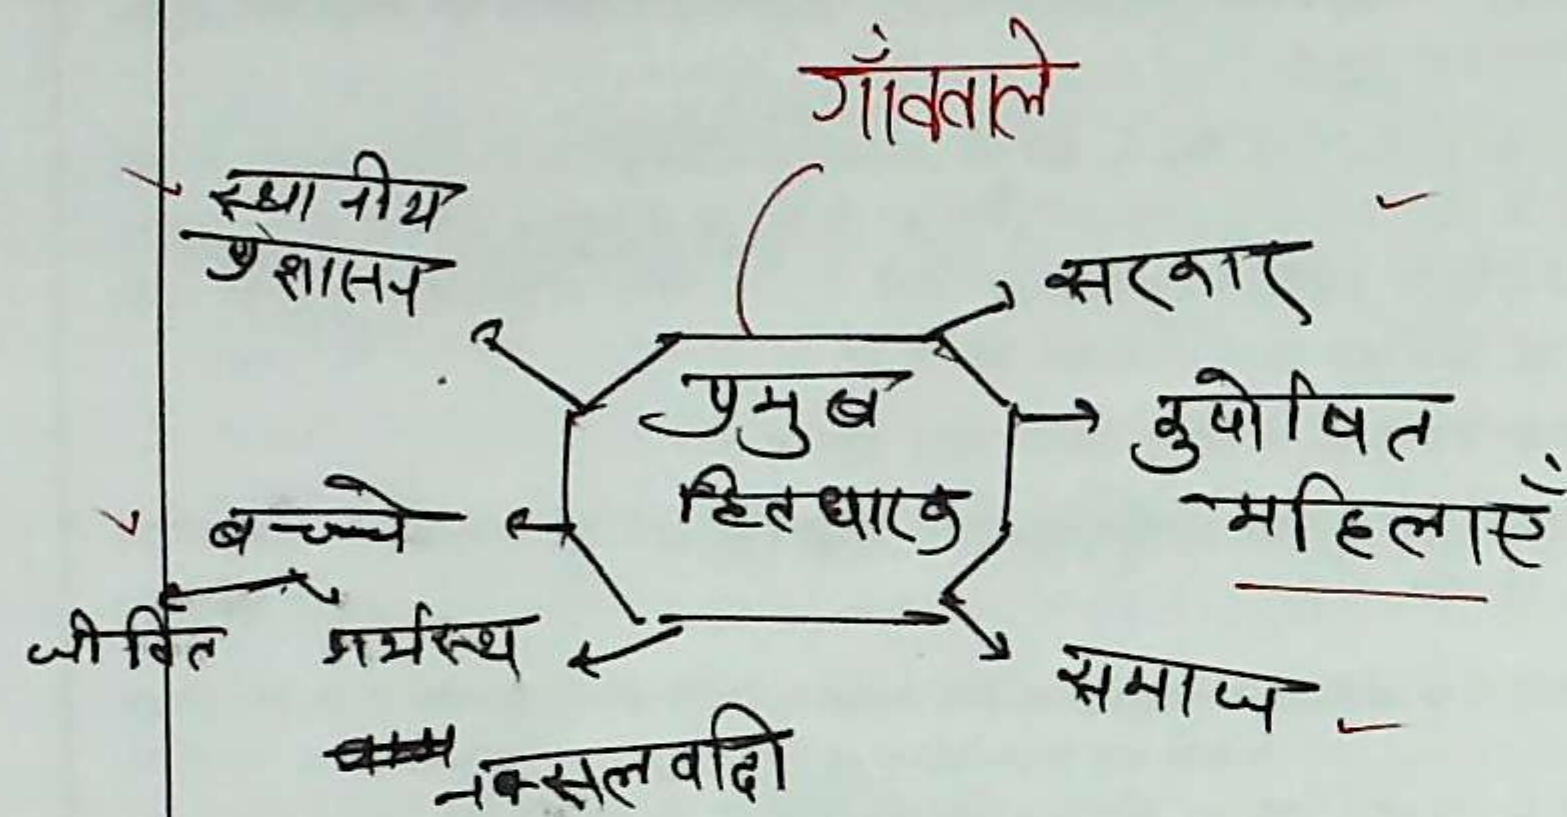 गाँववाले
स्थानीय
प्रशासन
सरकार
प्रमुख
हितधारक
कुपोषित
महिलाएँ
बच्चे
जीवित गर्भस्थ
समाज
नक्सलवादी